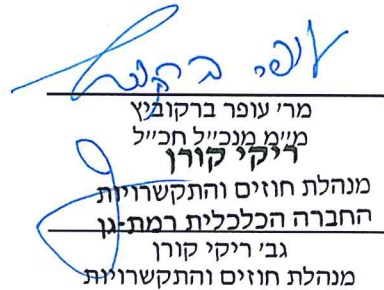 עופר ברקוביץ
מר׳ עופר ברקוביץ
מ״מ מנכ״ל חכ״ל
ריקי קורן
מנהלת חוזים והתקשרויות
החברה הכלכלית רמת-גן
גב׳ ריקי קורן
מנהלת חוזים והתקשרויות